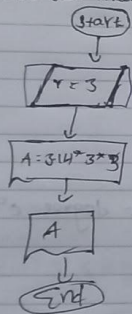 Start
r = 3
A = 3.14 * 3 * 3
A
End